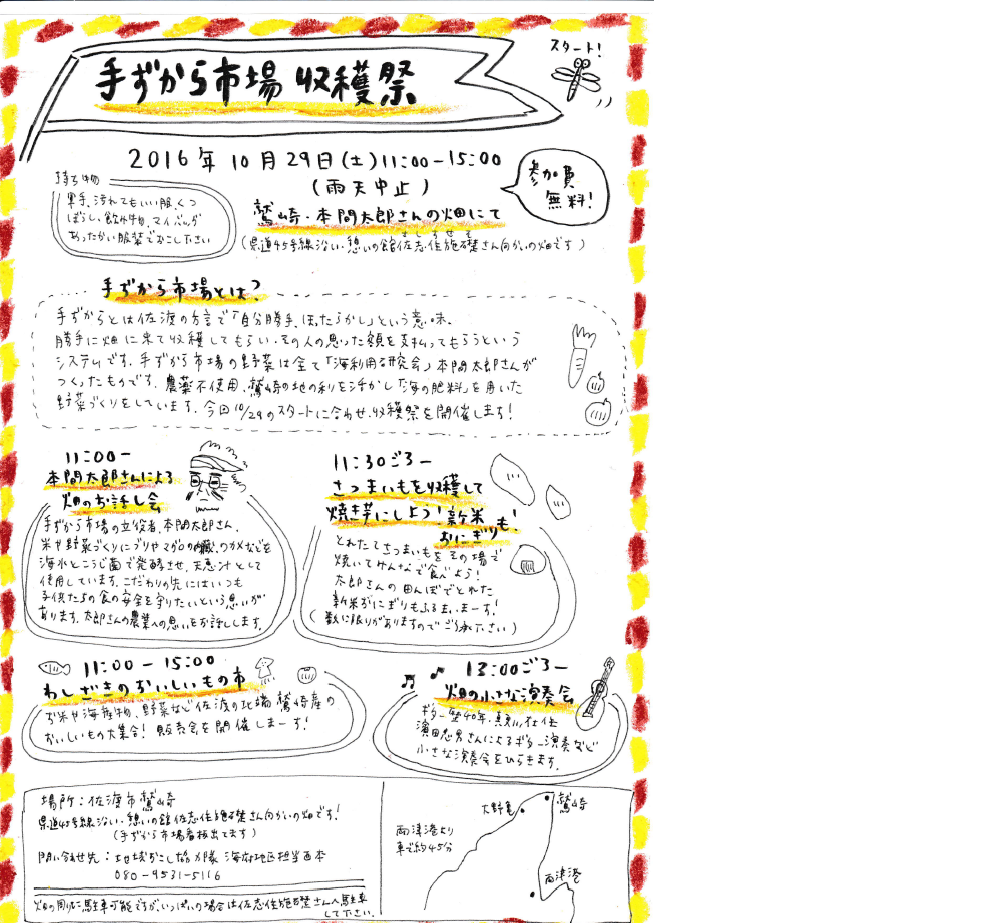 手ずから市場 収穫祭
スタート!
2016年10月29日(土)11:00-15:00
(雨天中止)
参加費
無料!
持ち物
軍手、汚れてもいい服、くつ
ぼうし、飲み物、マイバッグ
あったかい服装でおこし下さい
鷲崎・本間太郎さんの畑にて
(県道45号線沿い、憩いの館佐志住施礎さん向かいの畑です)
手ずから市場とは?
手ずからとは佐渡の方言で「自分勝手、ほったらかし」という意味。
勝手に畑に来て収穫してもらい、その人の思った額を支払ってもらうという
システムです。手ずから市場の野菜は全て「海利用る研究会」本間太郎さんが
つくったものです。農薬不使用、鷲崎の地の利を活かし「海の肥料」を用いた
野菜づくりをしています。今回10/29のスタートに合わせ、収穫祭を開催します!
11:00-
本間太郎さんによる
畑のお話し会
手ずから市場の立役者、本間太郎さん。
米や野菜づくりにブリやマグロの内臓、ワカメなどを
海水とこうじ菌で発酵させ、天恵汁として
使用しています。こだわりの先にはいつも
子供たちの食の安全を守りたいという思いが
あります。太郎さんの農業への思いをお話しします。
11:30ごろ-
さつまいもを収穫して
焼き芋にしよう!新米も!
おにぎり
とれたてさつまいもをその場で
焼いてみんなで食べよう!
太郎さんの田んぼでとれた
新米おにぎりもふるまいまーす!
(数に限りがありますのでご了承下さい)
11:00-15:00
わしざきのおいしいもの市
お米や海産物、野菜など佐渡の北端 鷲崎産の
おいしいもの大集合!販売会を開催しまーす!
13:00ごろ-
畑の小さな演奏会
ギター歴40年、在住
濱田忠男さんによるギター演奏など
小さな演奏会をひらきます。
場所:佐渡市鷲崎
県道45号線沿い、憩いの館佐志住施礎さん向かいの畑です!
(手ずから市場看板出てます)
問い合わせ先:地域おこし協力隊 海府地区担当西本
080-9531-5116
畑の周りに駐車可能ですが、いっぱいの場合は佐志住施礎さんへ駐車
して下さい。
大野亀
鷲崎
両津港より
車で約45分
両津港